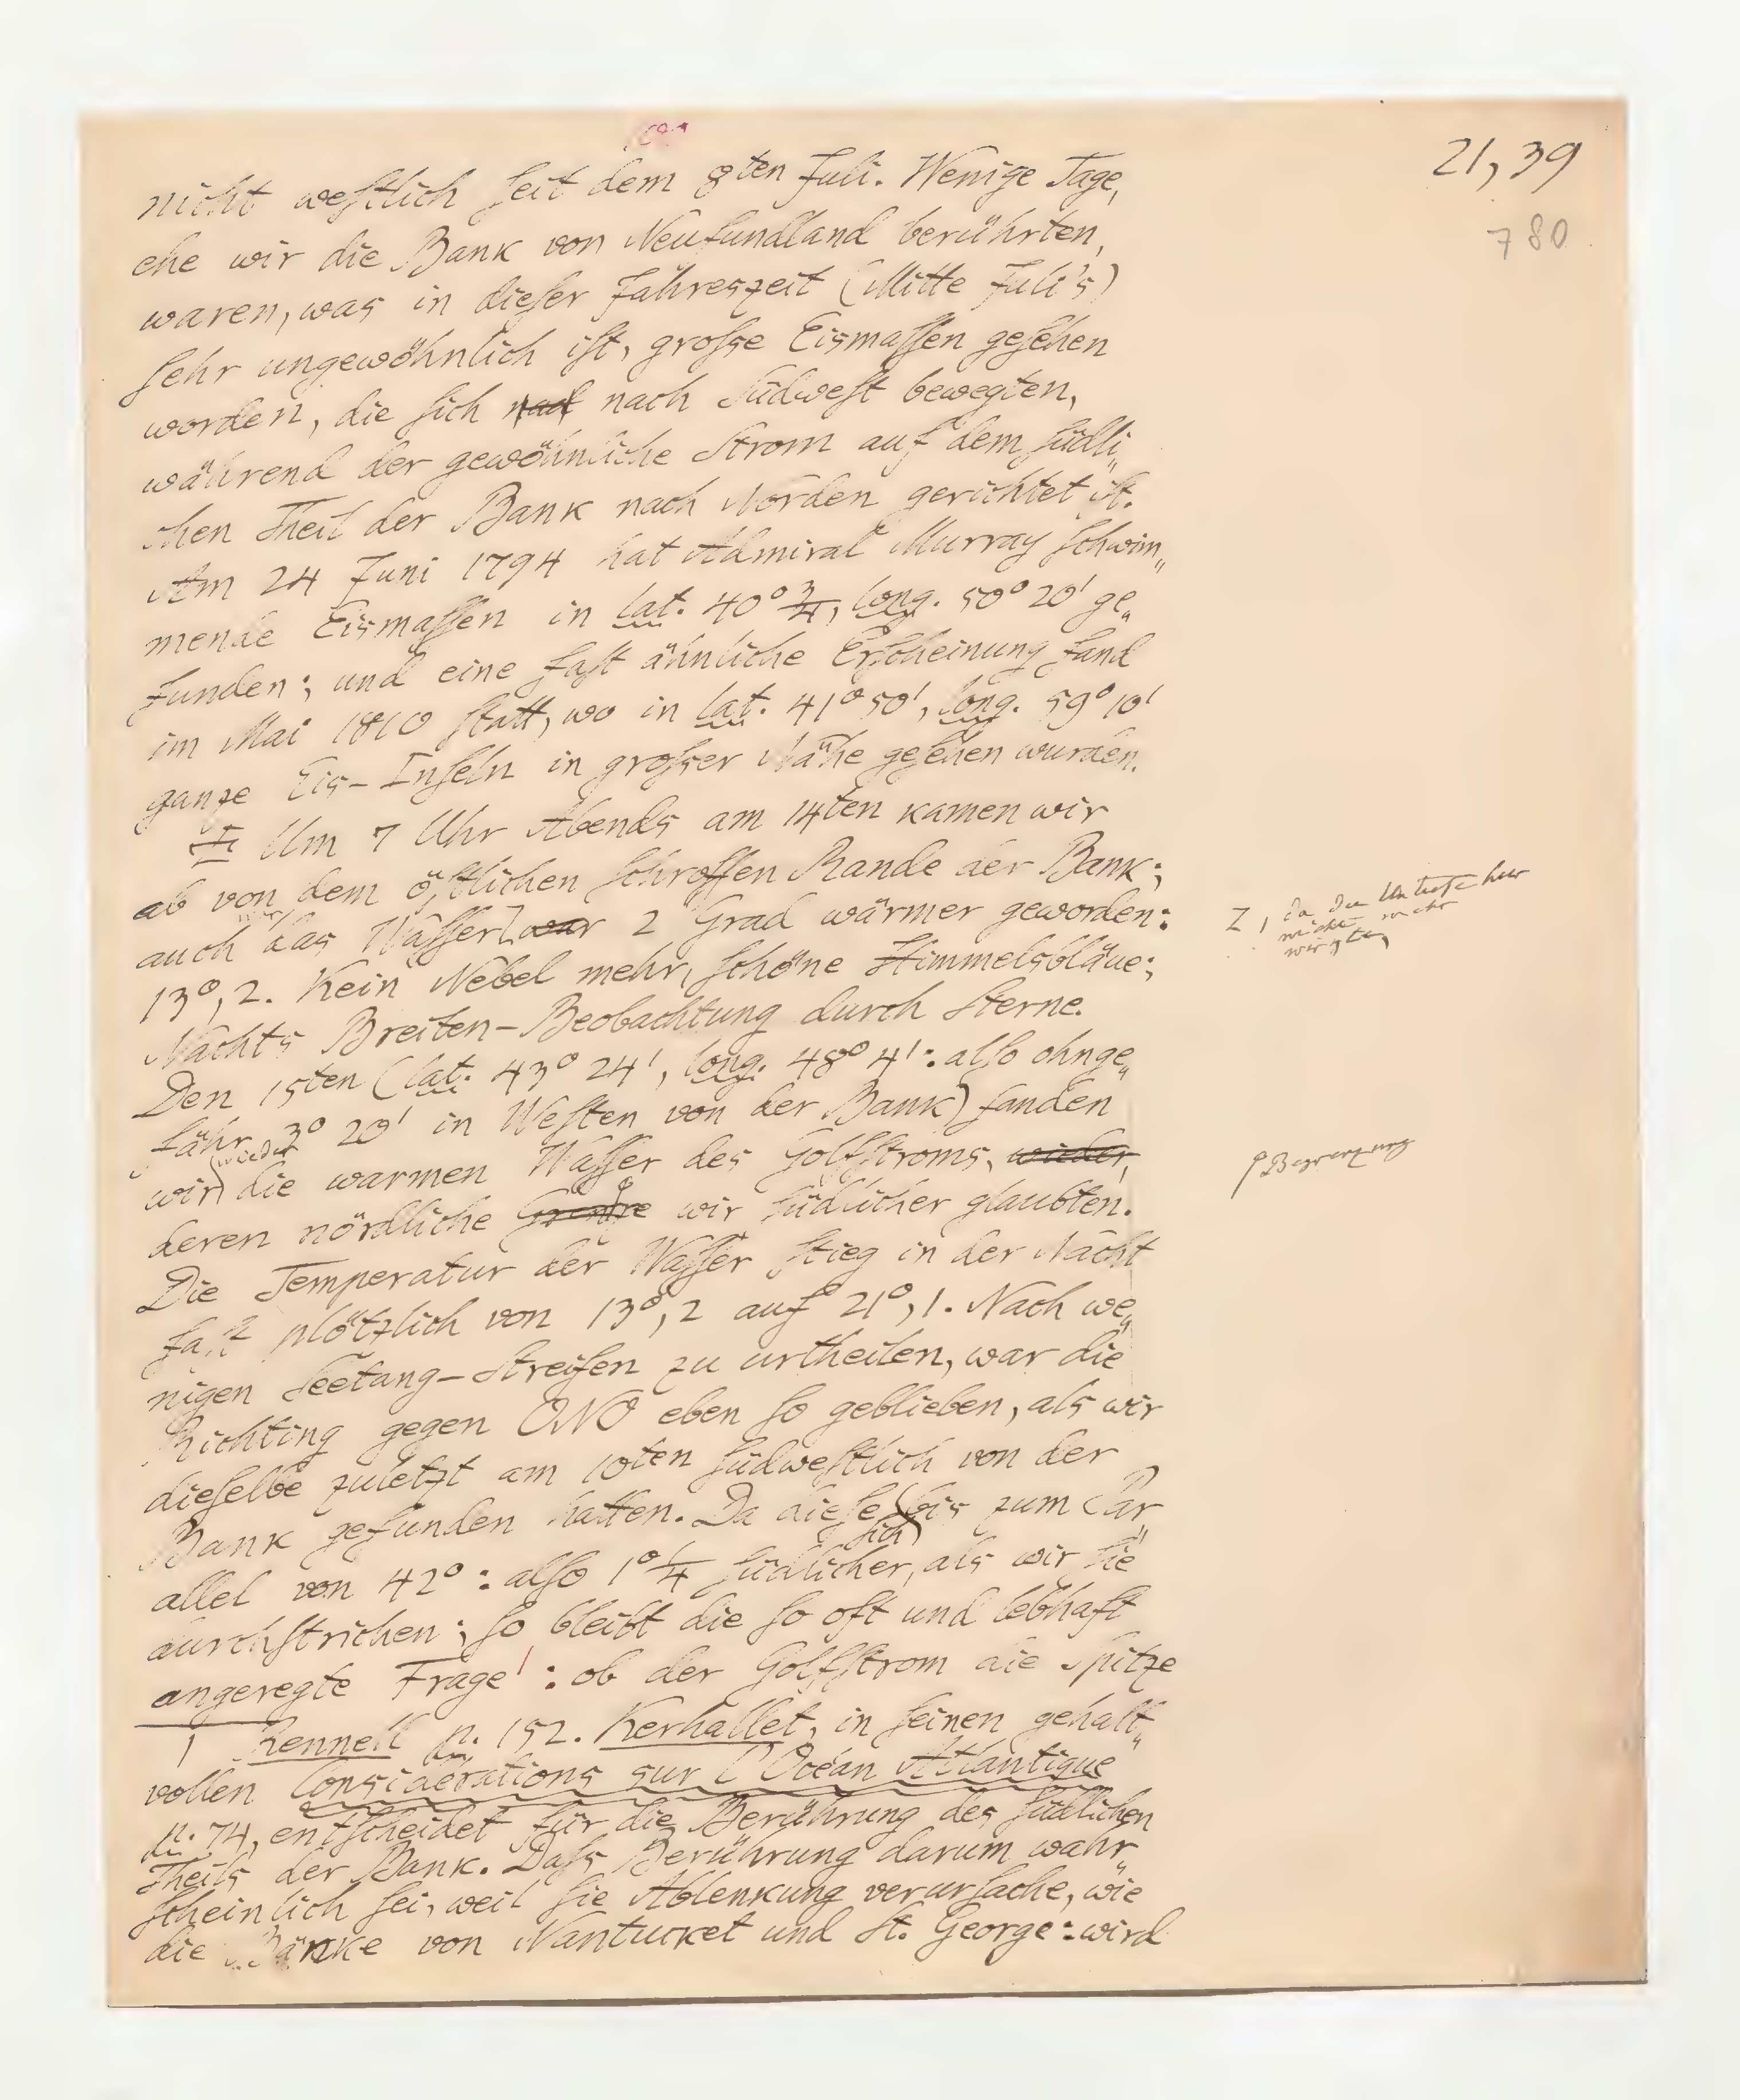 21, 39
780
nicht weſtlich ſeit dem 8ten Juli. Wenige Tage,
ehe wir die Bank von Neufundland berührten,
waren, was in dieſer Jahreszeit (Mitte Juli's)
ſehr ungewöhnlich iſt, groſse Eismaſſen geſehen
worden, die ſich nach Südweſt bewegten,
während der gewöhnliche Strom auf dem ſüdli„
chen Theil der Bank nach Norden gerichtet iſt.
Am 24 Juni 1794 hat Admiral Murray ſchwim„
mende Eismaſſen in lat. 40° 3/4, long. 50° 20' ge„
funden; und eine faſt ähnliche Erſcheinung fand
im Mai 1810 ſtatt, wo in lat. 41° 50', long. 59° 10'
ganze Eis-Inſeln in groſser Nähe geſehen wurden.
Um 7 Uhr Abends am 14ten kamen wir
ab von dem öſtlichen ſchroffen Rande der Bank;
auch war das Waſſer war 2 Grad wärmer geworden:
, da die Untiefe hier
nicht mehr
wirkte,
13°, 2. Kein Nebel mehr, ſchöne Himmelsbläue;
Nachts Breiten-Beobachtung durch Sterne.
Den 15ten (lat. 43° 24', long. 48° 4': alſo ohnge„
fähr 3° 20' in Weſten von der Bank) fanden
wir wieder die warmen Waſſer des Golfſtroms, wieder,
Begrenzung
deren nördliche Grenze wir ſüdlicher glaubten.
Die Temperatur der Waſſer ſtieg in der Nacht
faſt plötzlich von 13°, 2 auf 21°, 1. Nach we„
nigen Seetang-Streifen zu urtheilen, war die
Richtung gegen ONO eben ſo geblieben, als wir
dieſelbe zuletzt am 10ten ſüdweſtlich von der
Bank gefunden hatten. Da dieſe bis zum Par„
ſich
allel von 42°: alſo 1° 1/4 ſüdlicher, als wir ſie
durchſtrichen; ſo bleibt die ſo oft und lebhaft
angeregte Frage¹: ob der Golfſtrom die Spitze
1 Rennell p. 152. Kerhallet, in ſeinen gehalt„
vollen Considérations sur l'Océan Atlantique
p. 74, entſcheidet für die Berührung des ſüdlichen
Theils der Bank. Daſs Berührung darum wahr„
ſcheinlich ſei, weil ſie Ablenkung verurſache, wie
die Bänke von Nantucket und St. George: wird